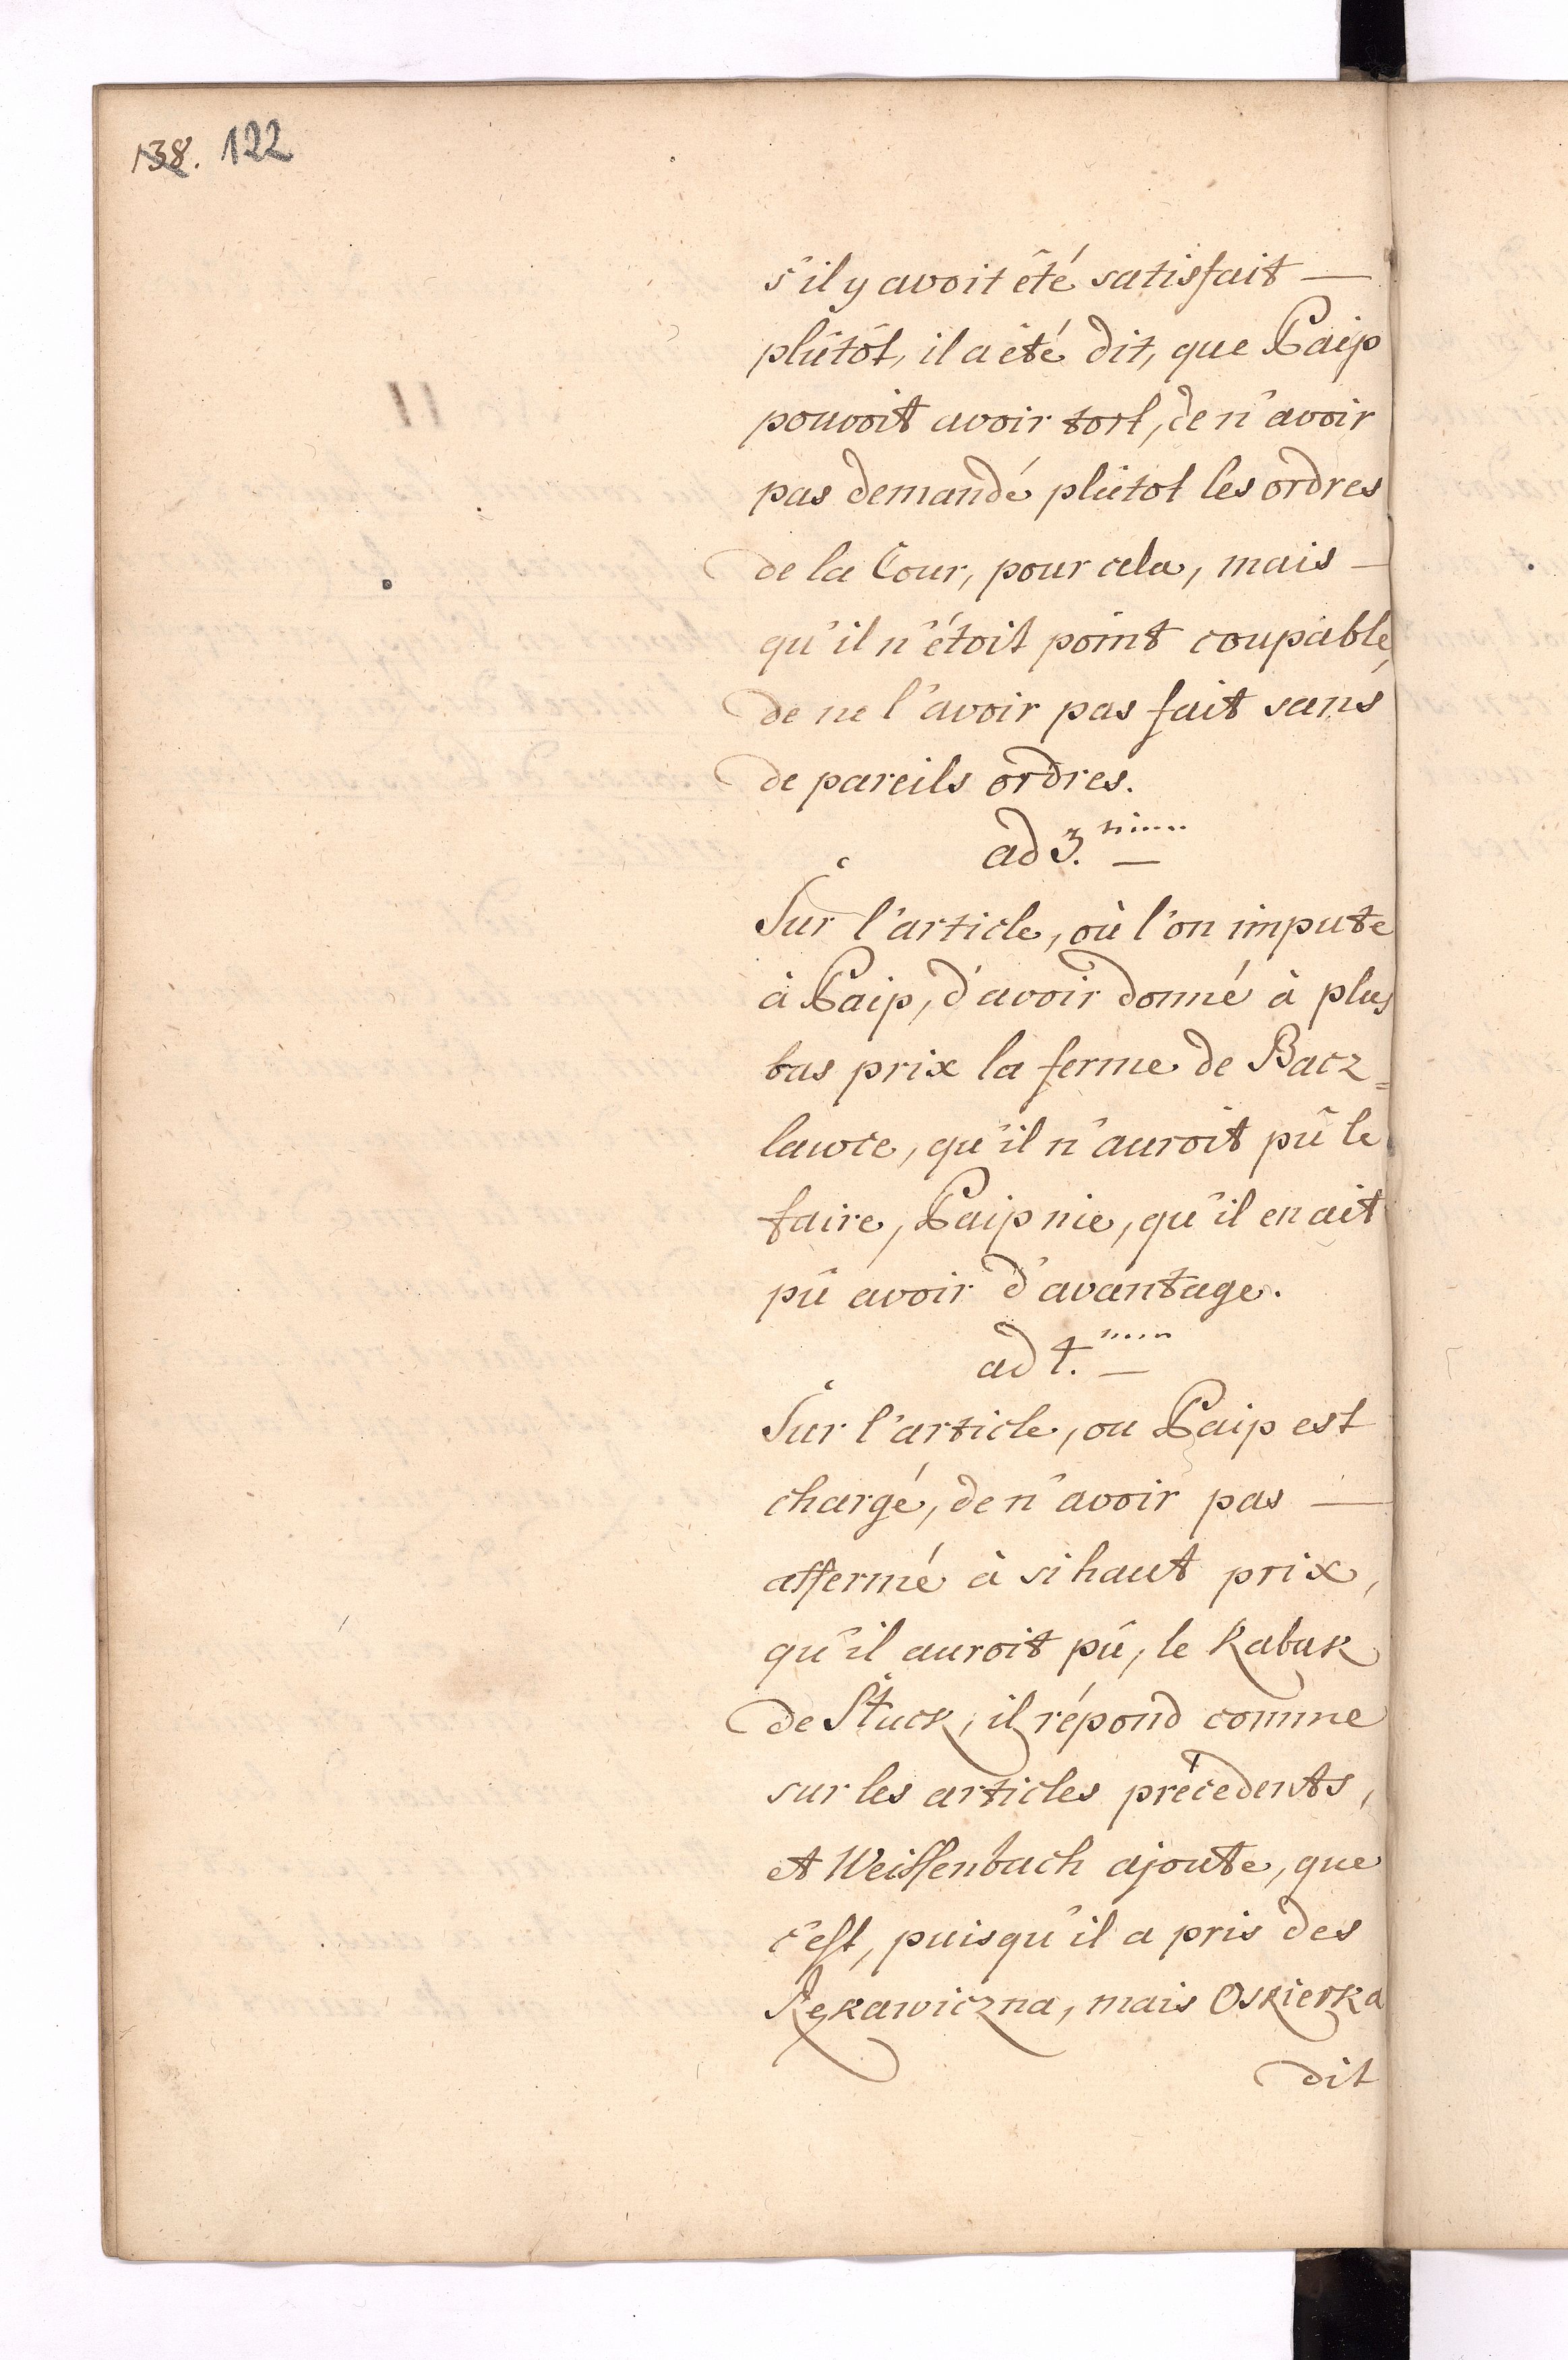 138. 122
s'il y avoit été satisfait —
plûtôt, il a été dit, que Paip
pouvoit avoir tort, de n'avoir
pas demandé plûtot les ordres
de la Cour, pour cela, mais —
qu'il n'étoit point coupable,
de ne l'avoir pas fait sans
de pareils ordres.
ad 3.
Sur l'article, où l'on impute
à Paip, d'avoir donné à plus
bas prix la ferme de Bacz=
lawce, qu'il n'auroit pû le
faire, Paip nie, qu'il en ait
pû avoir d'avantage.
ad 4.
Sur l'article, ou Paip est
chargé, de n'avoir pas —
affermé à si haut prix,
qu'il auroit pû, le Kabak
de Sluck, il répond comme
sur les articles précedents,
et Weissenbach ajoute, que
c'est, puisqu'il a pris des
Rękawiczna, mais Oskierka
dit